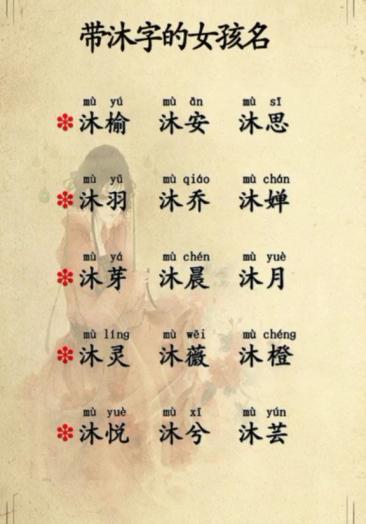 带沐字的女孩名
mù yú mù ān mù sī
沐榆 沐安 沐思
mù yǔ mù qiáo mù chán
沐羽 沐乔 沐婵
mù yá mù chén mù yuè
沐芽 沐晨 沐月
mù líng mù wēi mù chéng
沐灵 沐薇 沐橙
mù yuè mù xī mù yún
沐悦 沐兮 沐芸